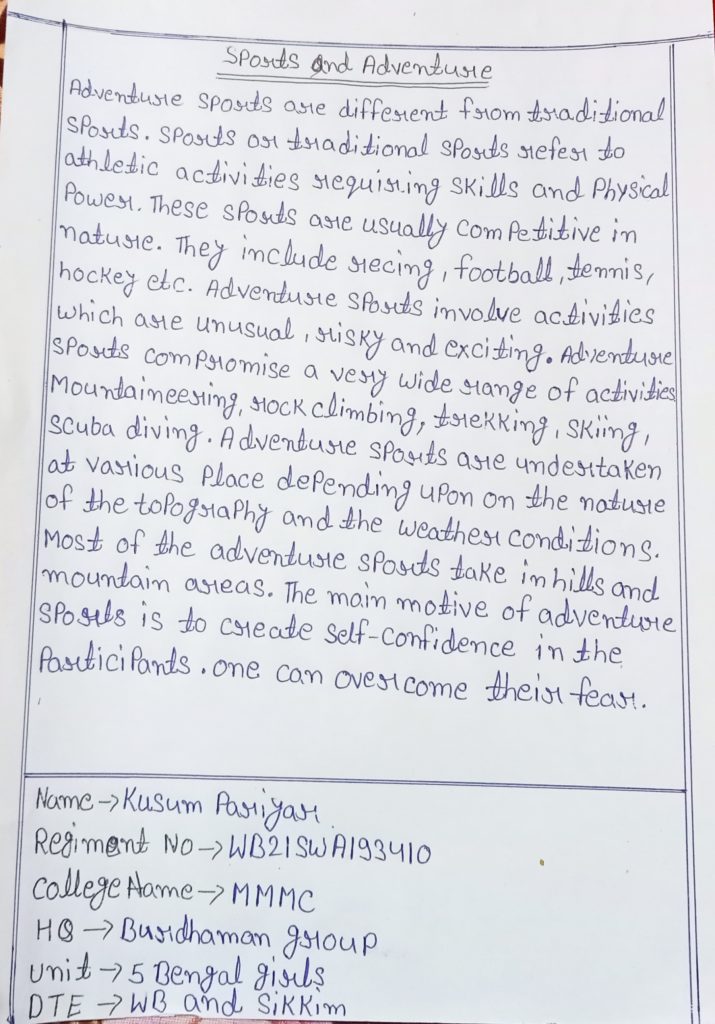 Sports and Adventure
Adventure sports are different from traditional
sports. sports or traditional sports refer to
athletic activities requiring skills and Physical
Power. These sports are usually competitive in
nature. They include recing, football, tennis,
hockey etc. Adventure sports involve activities
which are unusual, risky and exciting. Adventure
sports compromise a very wide range of activities
Mountaineering, rock climbing, trekking, skiing,
scuba diving. Adventure sports are undertaken
at various place depending upon on the nature
of the topography and the weather conditions.
Most of the adventure sports take in hills and
mountain areas. The main motive of adventure
sports is to create self-confidence in the
Participants. one can overcome their fear.
Name → Kusum Pariyar
Regiment No → WB21SWA193410
College Name → MMMC
HQ → Burdhaman group
Unit → 5 Bengal girls
DTE → WB and Sikkim